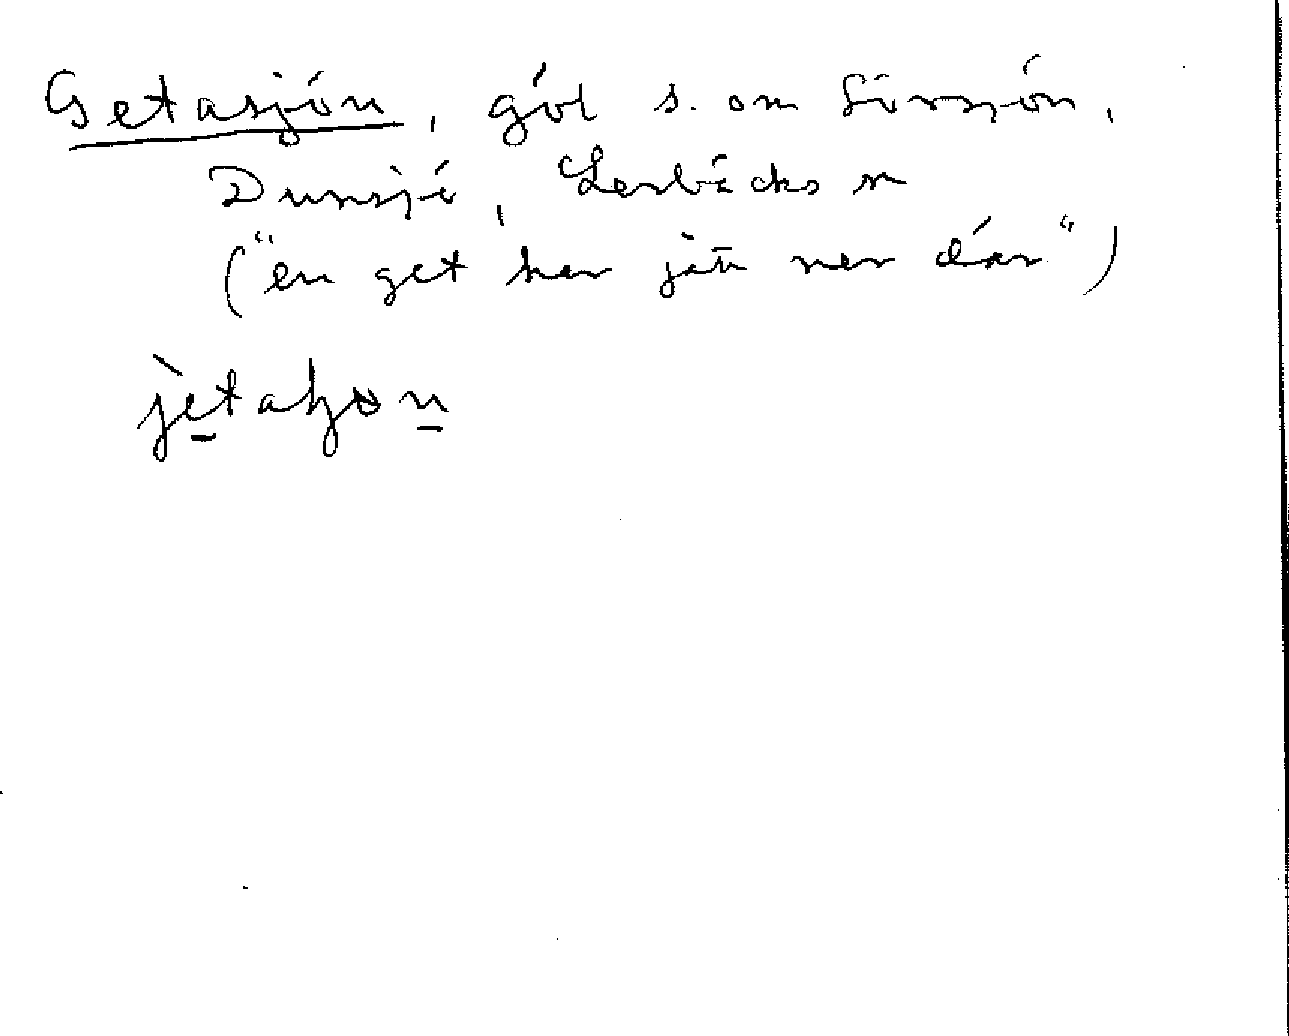 Getasjön, göl s. om Sörsjön,
Dunsjö, Lerbäcks sn
("en get har gått ner där")